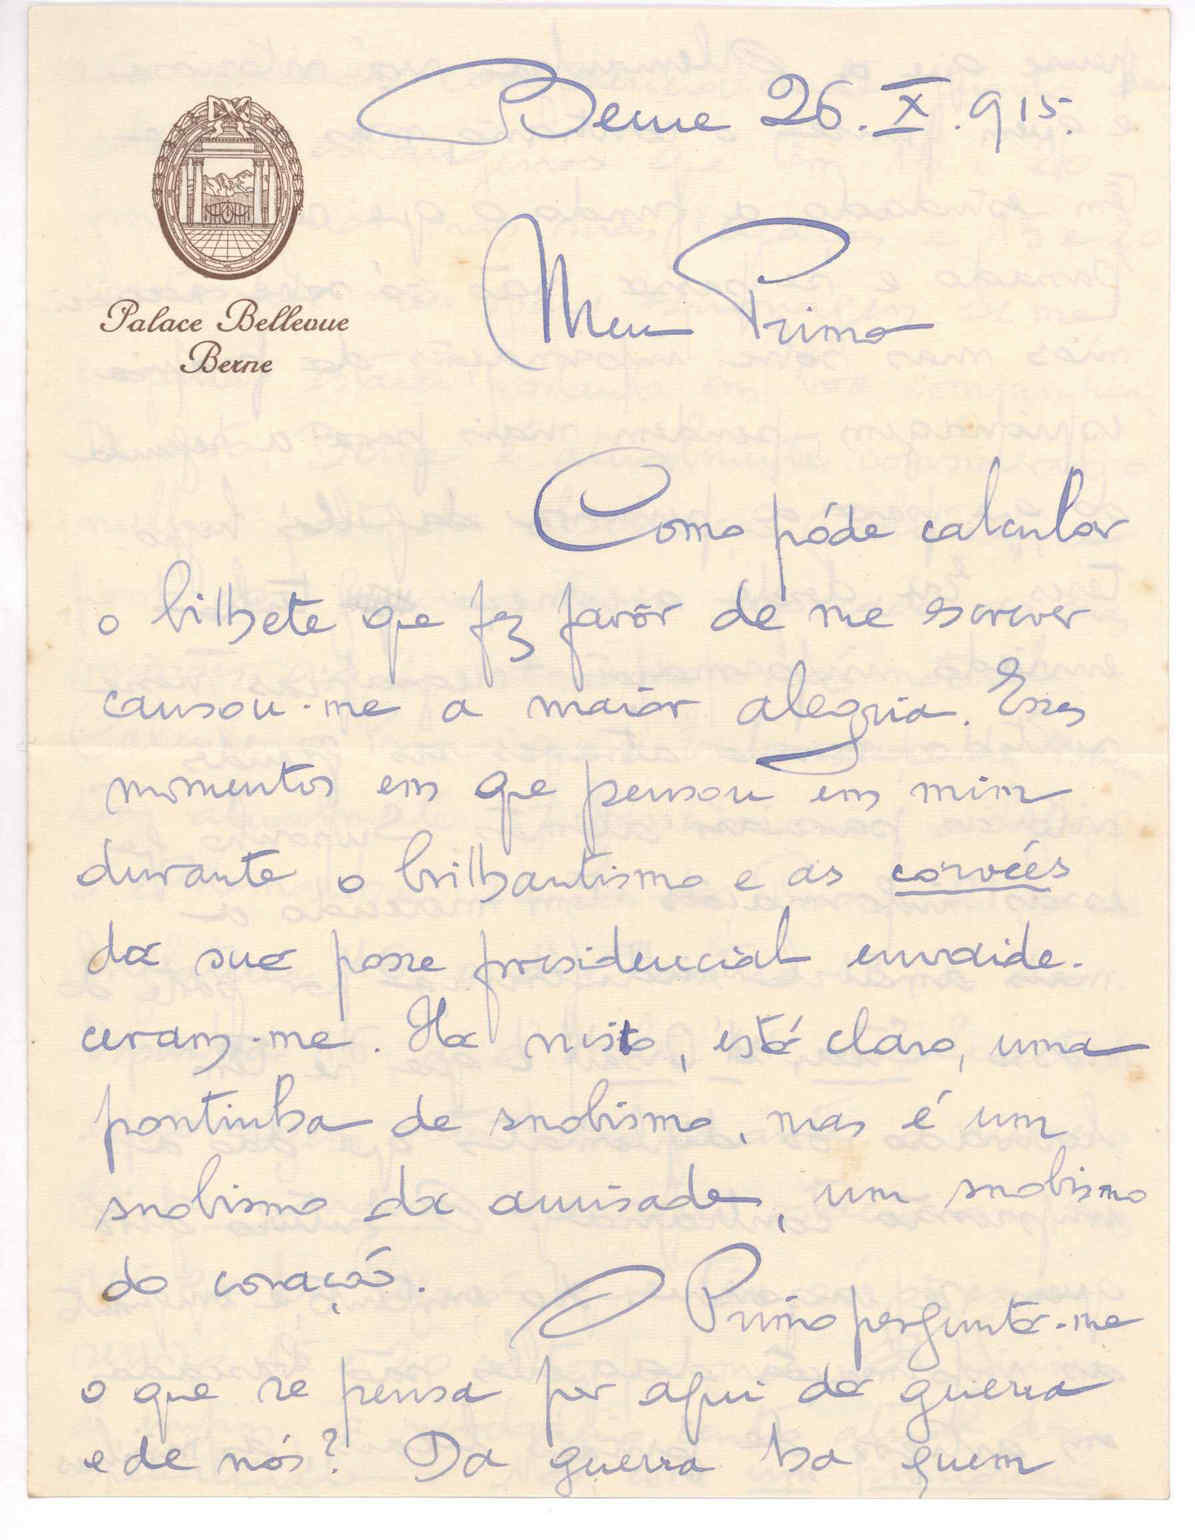 Berne 26.X.915.
Palace Bellevue
Berne
Meu Primo
Como póde calcular
o bilhete que fez favôr de me escrever
causou-me a maiór alegria. Esses
momentos em que pensou em mim
durante o brilhantismo e as corvées
da sua posse presidencial envaide-
ceram-me. Ha nisto, está claro, uma
pontinha de snobismo, mas é um
snobismo da amisade, um snobismo
do coração.
O Primo pergunta-me
o que se pensa por aqui da guerra
e de nós? Da guerra ha quem